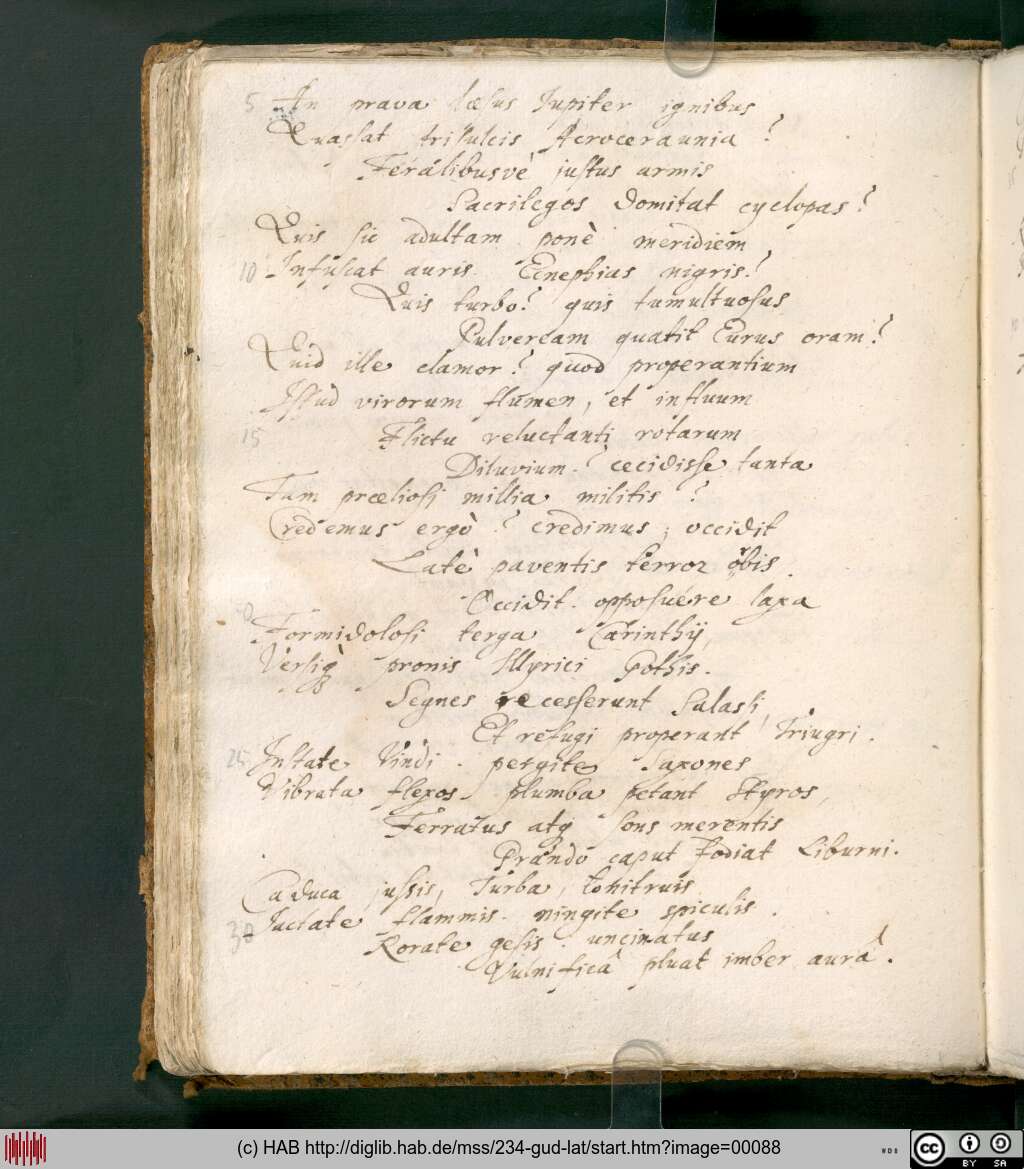 5 An prava læsus Jupiter ignibus
Quassat trisulcis Acroceraunia?
Feralibusvè justus armis
Sacrilegos domitat cyclopas?
Quis sic adultam ponè meridiem
10 Infuscat auris Ecnephias nigris?
Quis turbo? quis tumultuosus
Pulveream quatit Eurus oram?
Quid ille clamor? quod properantium
Istud virorum flumen, et influum
15 Flictu reluctanti rotarum
Diluvium? cecidisse tanta
Tam præliosi millia militis?
Credemus ergò? credimus, occidit
Latè paventis terror orbis.
Occidit. opposuere laxa
Formidolosi terga Carinthij,
Versiq pronis Illyrici Gothis.
Segnes recesserunt Salassi,
Et refugi properant Triugri.
25 Instate Vindi. pergite Saxones
Vibrata flexos plumba petant Styros,
Ferratus atq sons merentis
Prandó caput fodiat Liburni.
Caduca jussis, Turba, tonitruis
30 Jactate flammis. ningite spiculis.
Rorate gesis. uncinatus
Vulnificâ pluat imber aurâ.
(c) HAB http://diglib.hab.de/mss/234-gud-lat/start.htm?image=00088
WDB
cc
BY SA